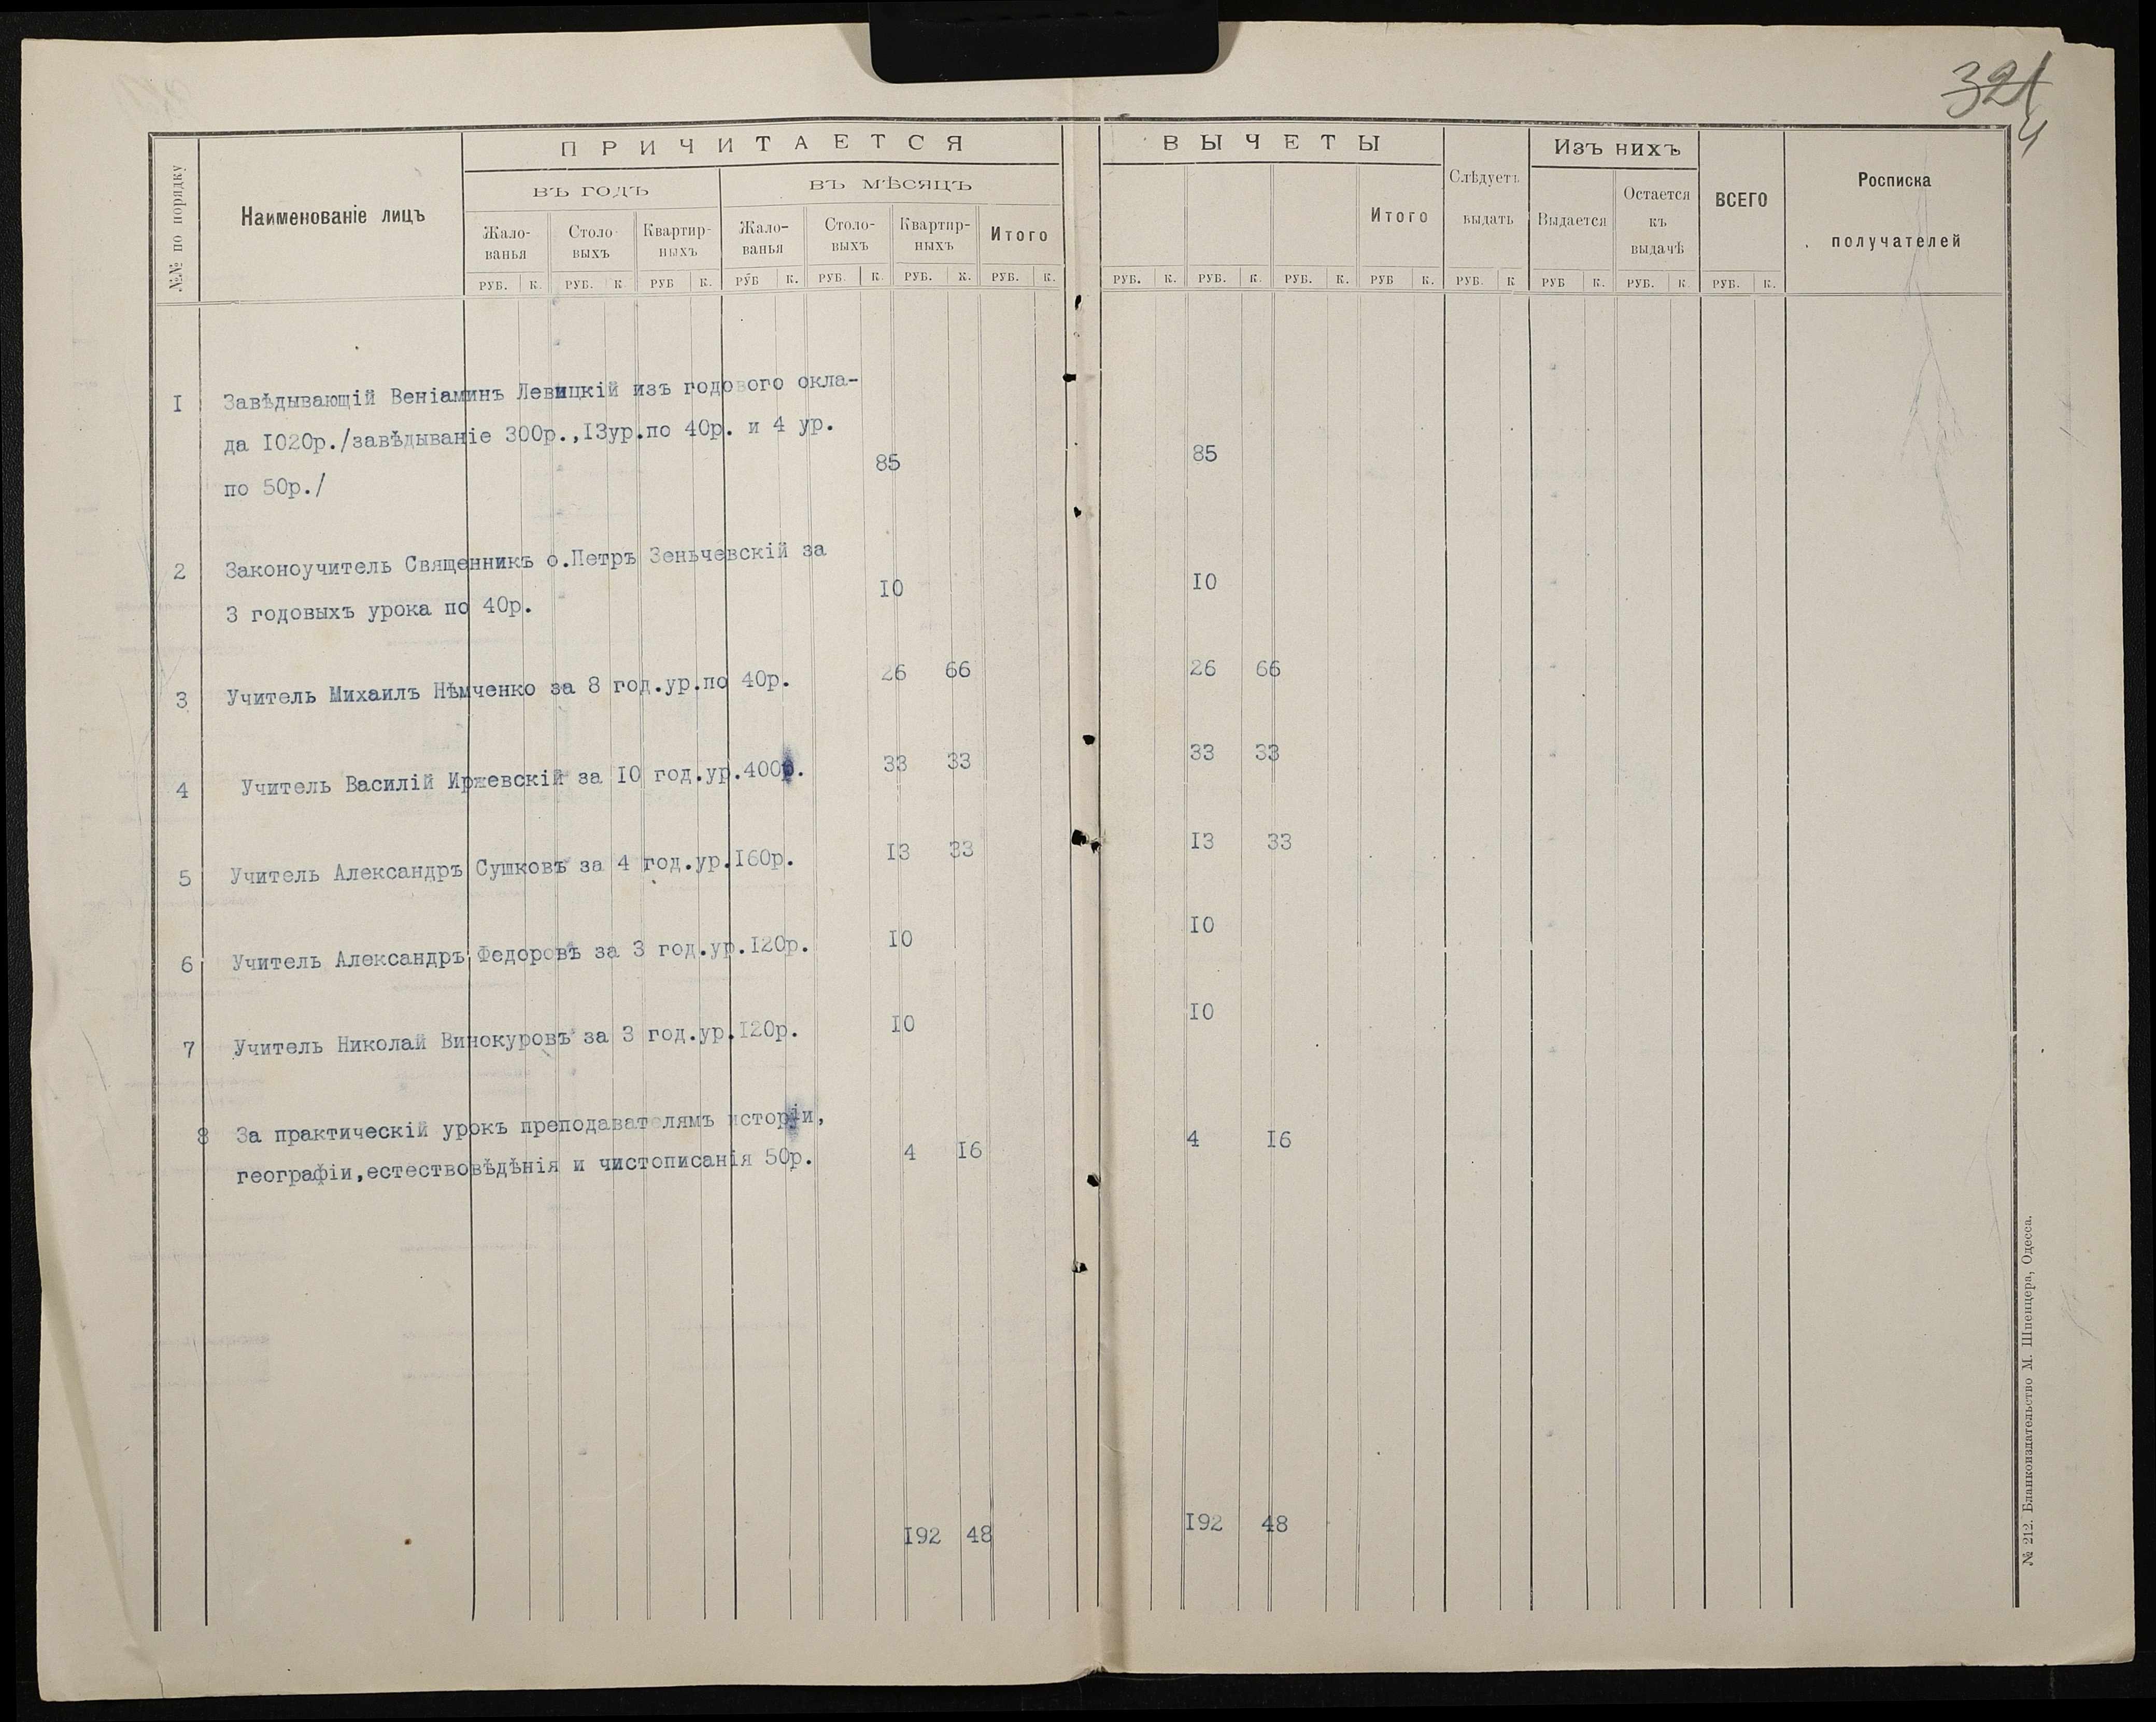 321
4
ПРИЧИТАЕТСЯ
ВЫЧЕТЫ
Изъ нихъ
№№ по порядку
Наименованіе лицъ
въ годъ
въ мѣсяцъ
Итого
Слѣдуетъ выдать
Выдается
Остается къ выдачѣ
ВСЕГО
Росписка получателей
Жало-ванья
Столо-выхъ
Квартир-ныхъ
Жало-ванья
Столо-выхъ
Квартир-ныхъ
Итого
РУБ. К. РУБ. К РУБ К. РУБ К. РУБ. К. РУБ. К. РУБ. К. РУБ. К. РУБ. К. РУБ. К. РУБ К. РУБ. К РУБ К. РУБ. К. РУБ. К.
I Завѣдывающій Веніаминъ Левицкій изъ годового окла-
да I020р./завѣдываніе 300р.,I3ур.по 40р. и 4 ур.
по 50р./ 85 85
2 Законоучитель Священникъ о.Петръ Зеньчевскій за
3 годовыхъ урока по 40р. I0 I0
3 Учитель Михаилъ Нѣмченко за 8 год.ур.по 40р. 26 66 26 66
4 Учитель Василій Иржевскій за I0 год.ур.400р. 33 33 33 33
5 Учитель Александръ Сушковъ за 4 год.ур.I60р. I3 33 I3 33
6 Учитель Александръ Федоровъ за 3 год.ур.I20р. I0 I0
7 Учитель Николай Винокуровъ за 3 год.ур.I20р. I0 I0
8 За практическій урокъ преподавателямъ исторіи,
географіи,естествовѣдѣнія и чистописанія 50р. 4 I6 4 I6
I92 48 I92 48
№ 212. Бланкоиздательство М. Шпенцера, Одесса.